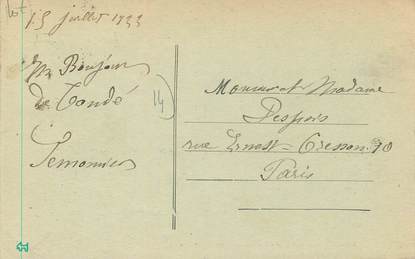 Lot
15 juillet 1933
Un Bonjour
de Condé
14
Lemonnier
Monsieur et Madame
Despois
rue Ernest=Cresson 10
Paris